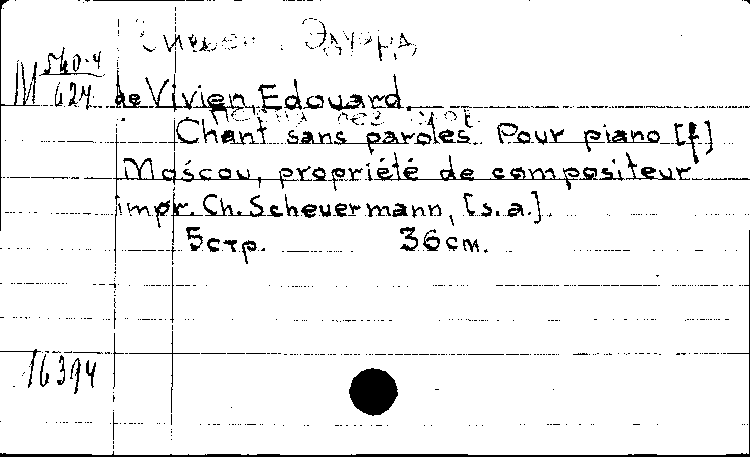 Эдуард
M 540-4
627
de Vivien, Edouard.
Песня без
Chant sans paroles. Pour piano [f]
Moscou, propriété de compositeur
impr. Ch. Scheuermann, [s.a.].
5стр. 36см.
16394